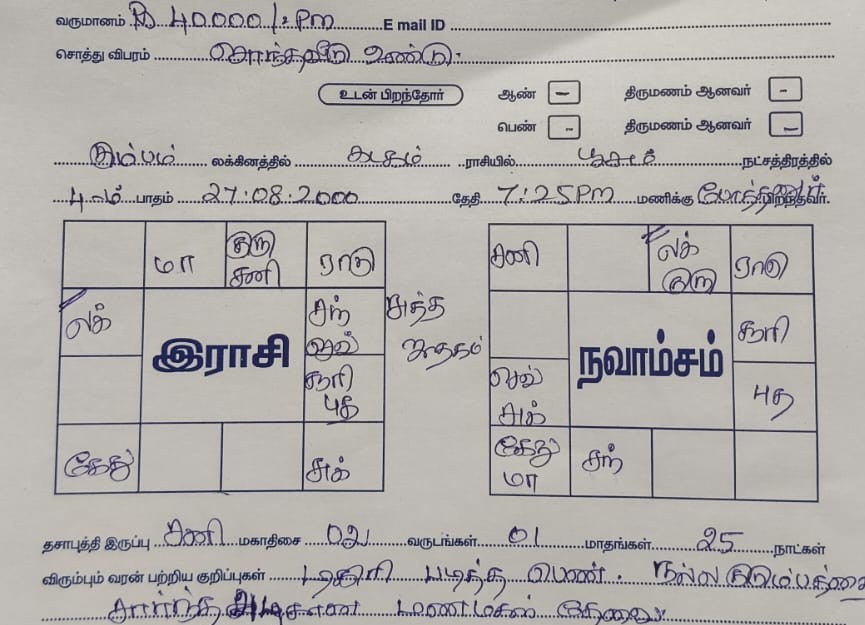 வருமானம் ரூ 40000/= Pm E mail ID
சொத்து விபரம் சொந்தவீடு உண்டு.
உடன் பிறந்தோர் ஆண் – திருமணம் ஆனவர் –
பெண் – திருமணம் ஆனவர் –
கும்பம் லக்கினத்தில் கடகம் ராசியில் பூசம் நட்சத்திரத்தில்
4-ம் பாதம் 27.08.2000 தேதி 7:25 PM மணிக்கு போத்தனூர் பிறந்தவர்.
மா குரு சனி ராகு
லக் சந் செவ்
இராசி
சூரி புத
கேது சுக்
சுத்த ஜாதகம்
சனி லக் குரு ராகு
சூரி
நவாம்சம்
செவ் சுக் புத
கேது மா சந்
தசாபுத்தி இருப்பு சனி மகாதிசை 02 வருடங்கள் 01 மாதங்கள் 25 நாட்கள்
விரும்பும் வரன் பற்றிய குறிப்புகள் டிகிரி படித்த பெண். நல்ல குடும்பத்தை
சார்ந்த மணமகள் தேவை.